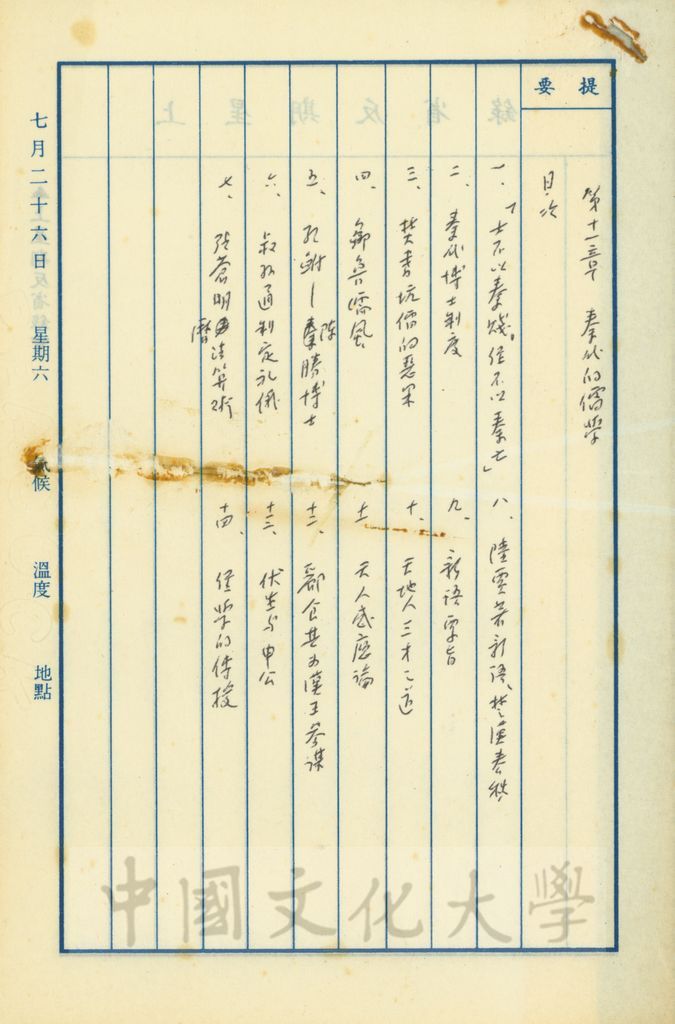 提要
第十三章 秦代的儒學
目次
一、「士不以秦賤,經不以秦亡」
二、秦代博士制度
三、焚書坑儒的惡果
四、鄒魯儒風
五、孔鮒—陳勝博士
六、叔孫通制定礼儀
七、張蒼明曆法算術
八、陸賈著新語、楚漢春秋
九、新語要旨
十、天地人三才之道
十一、天人感應論
十二、酈食其為漢王參謀
十三、伏生与申公
十四、經學的傳授
七月二十六日 星期六 氣候 溫度 地點
中國文化大學